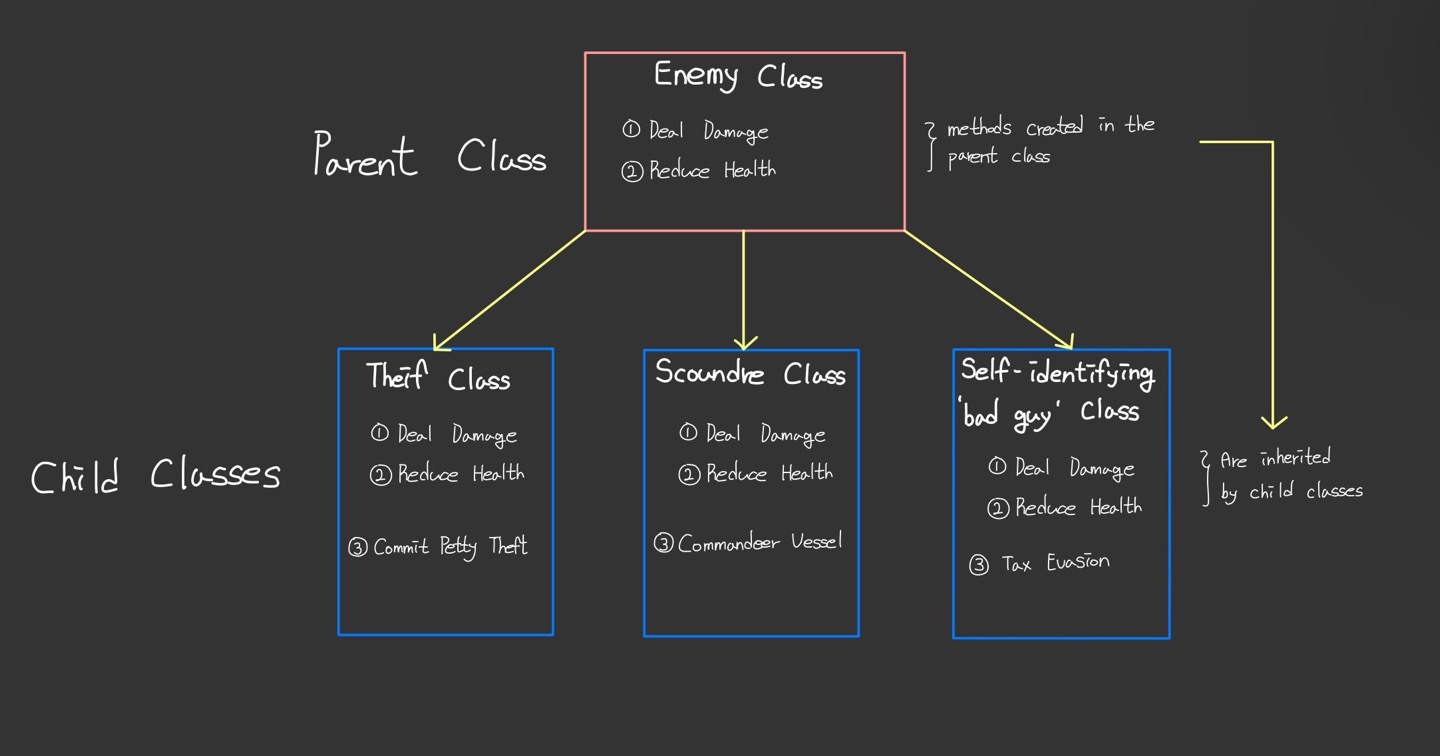 Enemy Class
① Deal Damage
② Reduce Health
Parent Class
} methods created in the
parent class
Theif Class
① Deal Damage
② Reduce Health
③ Commit Petty Theft
Scoundre Class
① Deal Damage
② Reduce Health
③ Commandeer Vessel
Self-identifying
'bad guy' Class
① Deal Damage
② Reduce Health
③ Tax Evasion
Child Classes
} Are inherited
by child classes